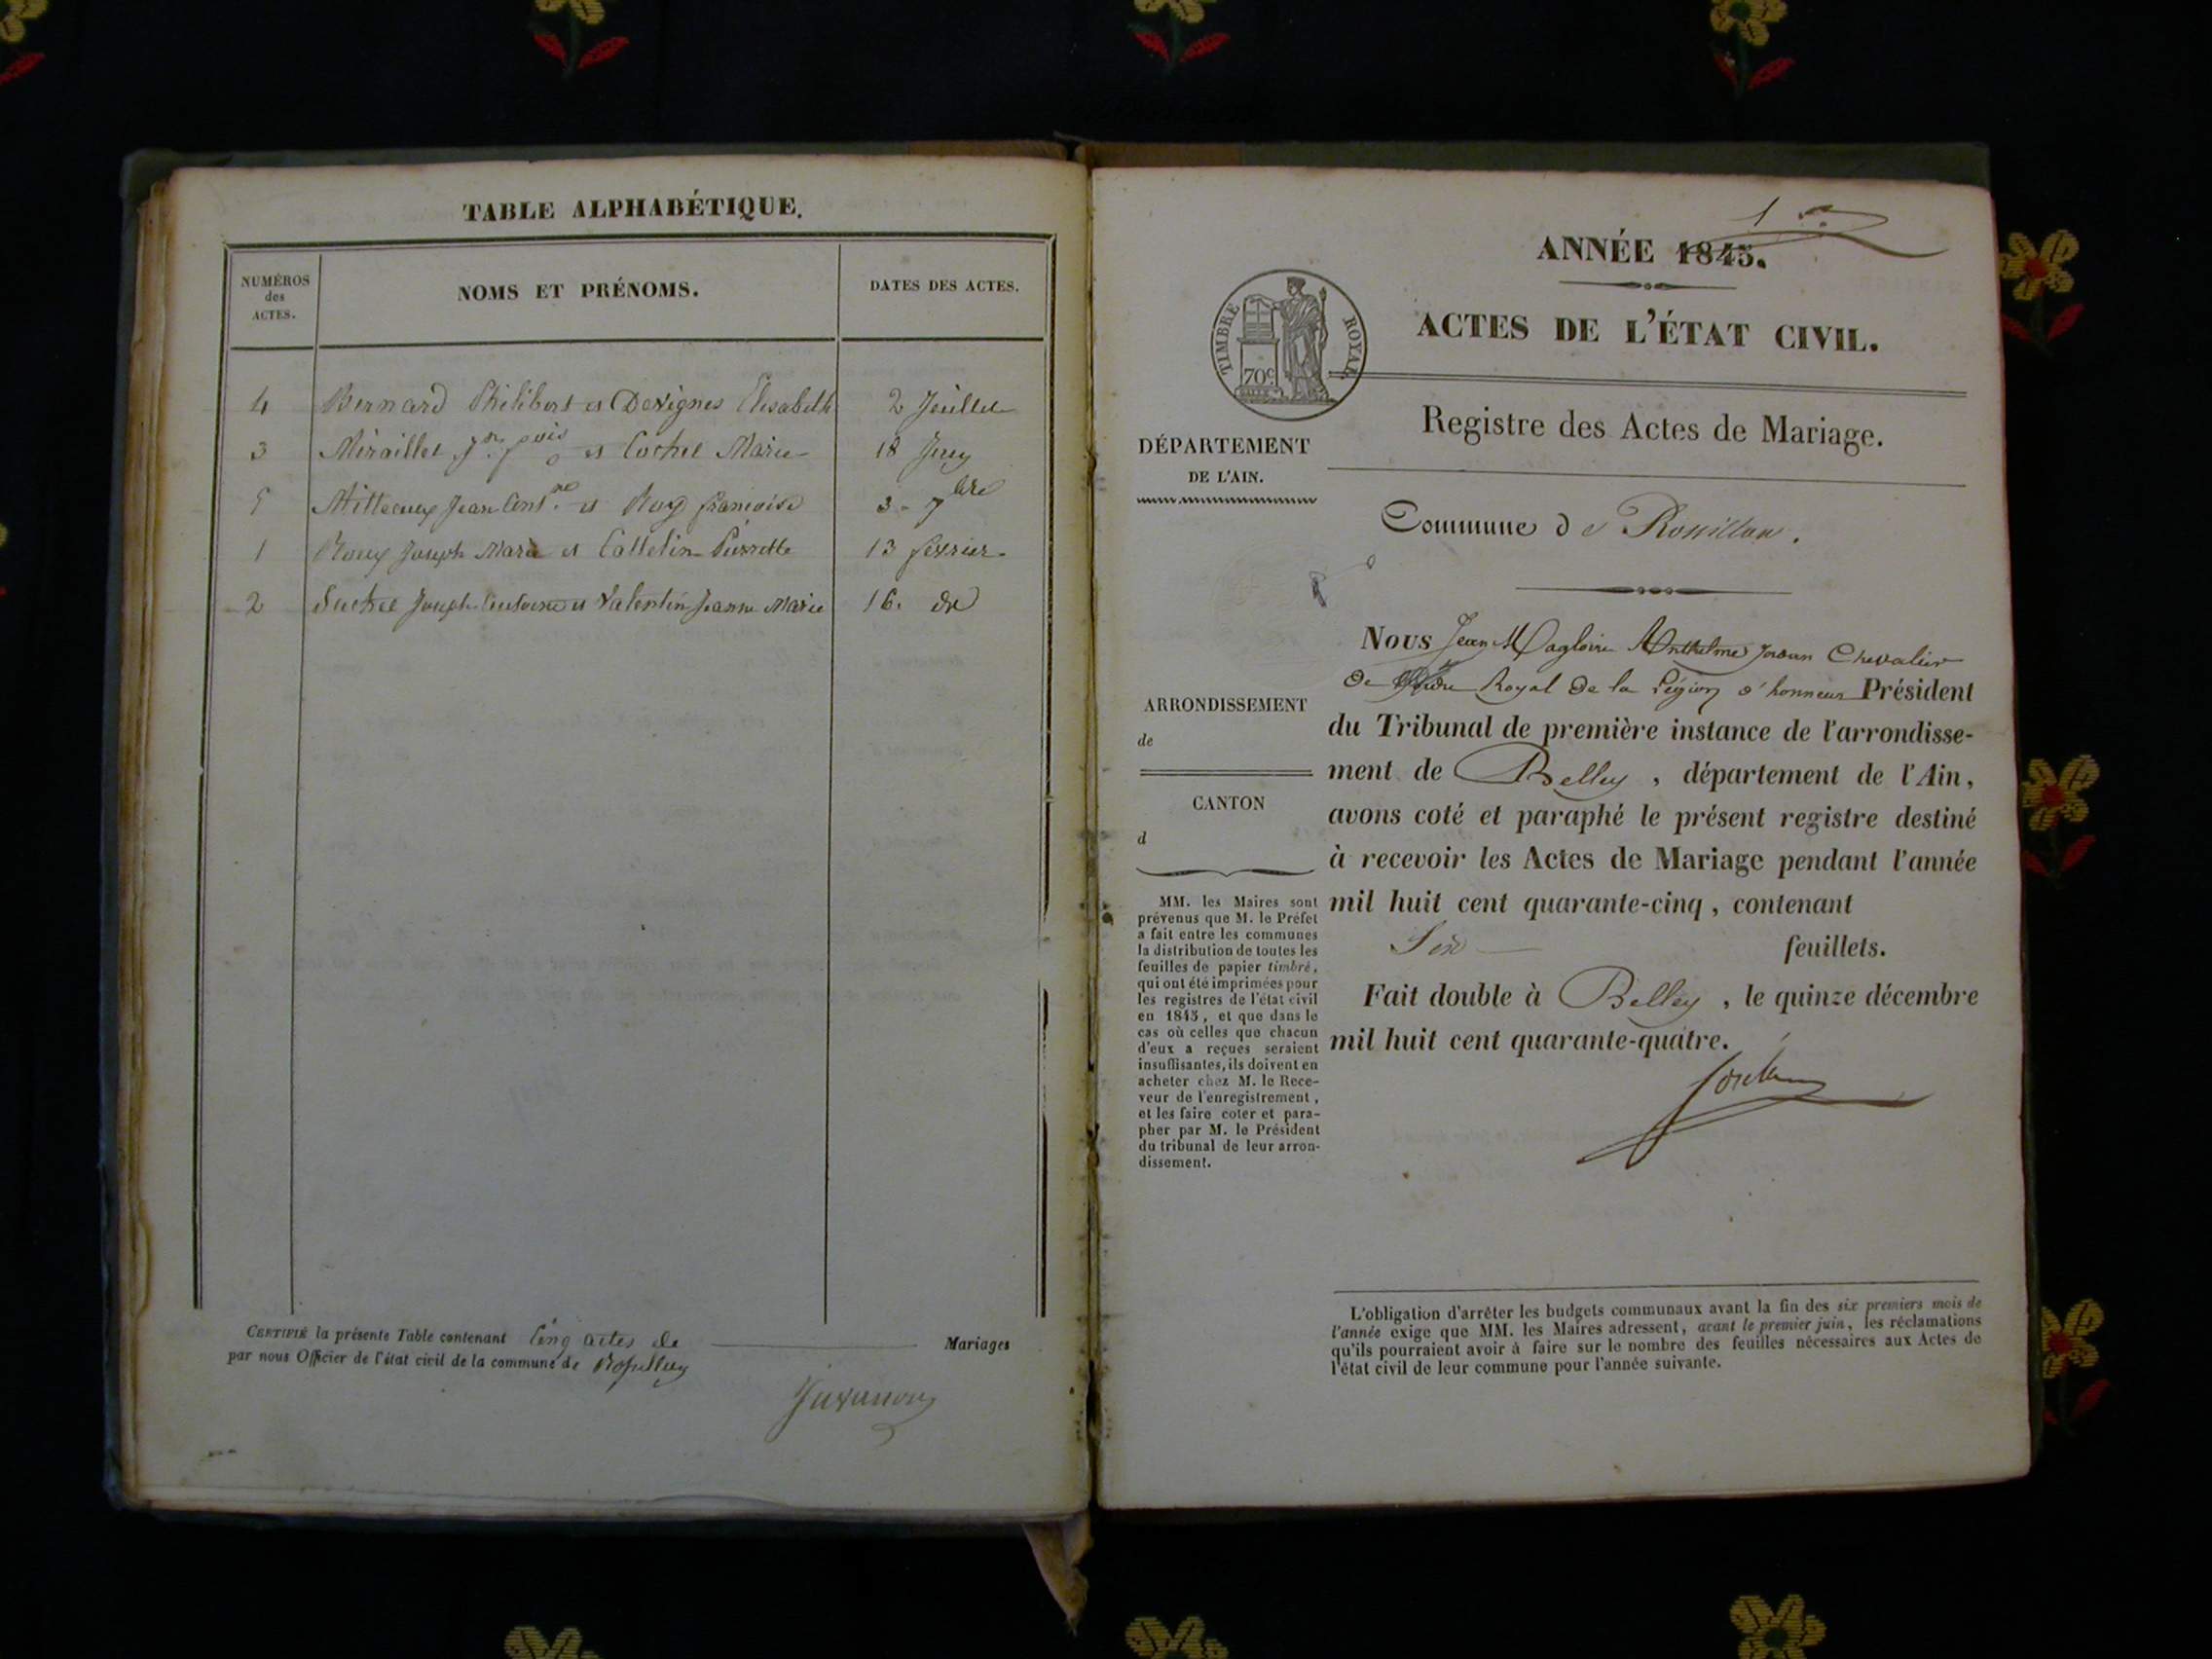 TABLE ALPHABÉTIQUE.
NUMÉROS
des
ACTES.
NOMS ET PRÉNOMS.
DATES DES ACTES.
4 Bernard Philibert et Devignes Elisabeth 2 Juillet
3 Miraillet et Cochet Marie 18 Juin
5 Jean et Roy françoise 3 - 7bre
1 Roux Joseph Marie et Callelin Pierrette 13 fevrier
2 Suchet Joseph Antoine et Valentin Jeanne Marie 16. do
CERTIFIÉ la présente Table contenant Cinq actes de Mariages
par nous Officier de l'état civil de la commune de Rossillon
Juvanon
1er
ANNÉE 1845.
TIMBRE ROYAL
70c
ACTES DE L'ÉTAT CIVIL.
Registre des Actes de Mariage.
DÉPARTEMENT
DE L'AIN.
Commune de Rossillon.
ARRONDISSEMENT
de
CANTON
d
MM. les Maires sont
prévenus que M. le Préfet
a fait entre les communes
la distribution de toutes les
feuilles de papier timbré,
qui ont été imprimées pour
les registres de l'état civil
en 1845, et que dans le
cas où celles que chacun
d'eux a reçues seraient
insuffisantes, ils doivent en
acheter chez M. le Rece-
veur de l'enregistrement,
et les faire coter et para-
pher par M. le Président
du tribunal de leur arron-
dissement.
Nous Jean Magloire Anthelme Chevalier
de Royal de la Légion d'honneur Président
du Tribunal de première instance de l'arrondisse-
ment de Belley, département de l'Ain,
avons coté et paraphé le présent registre destiné
à recevoir les Actes de Mariage pendant l'année
mil huit cent quarante-cinq, contenant
Six feuillets.
Fait double à Belley, le quinze décembre
mil huit cent quarante-quatre.
L'obligation d'arrêter les budgets communaux avant la fin des six premiers mois de
l'année exige que MM. les Maires adressent, avant le premier juin, les réclamations
qu'ils pourraient avoir à faire sur le nombre des feuilles nécessaires aux Actes de
l'état civil de leur commune pour l'année suivante.